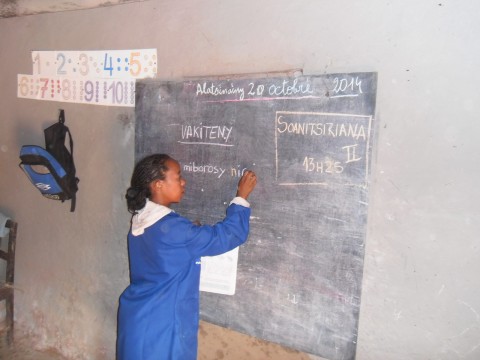 1 2 3 4 5
6 7 8 9 10
Alatsinainy 20 octobre 2014
VAKITENY
miborosy ni
SOANITSIRIANA
II
13H25